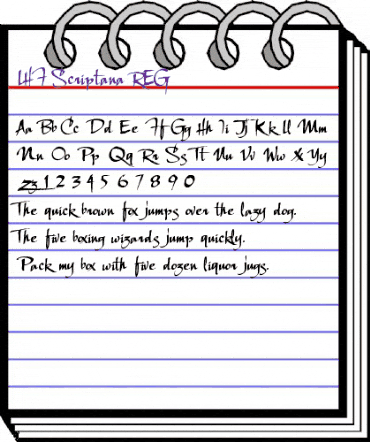 LHF Scriptana REG
Aa Bb Cc Dd Ee Ff Gg Hh Ii Jj Kk Ll Mm
Nn Oo Pp Qq Rr Ss Tt Uu Vv Ww Xx Yy
Zz 1 2 3 4 5 6 7 8 9 0
The quick brown fox jumps over the lazy dog.
The five boxing wizards jump quickly.
Pack my box with five dozen liquor jugs.